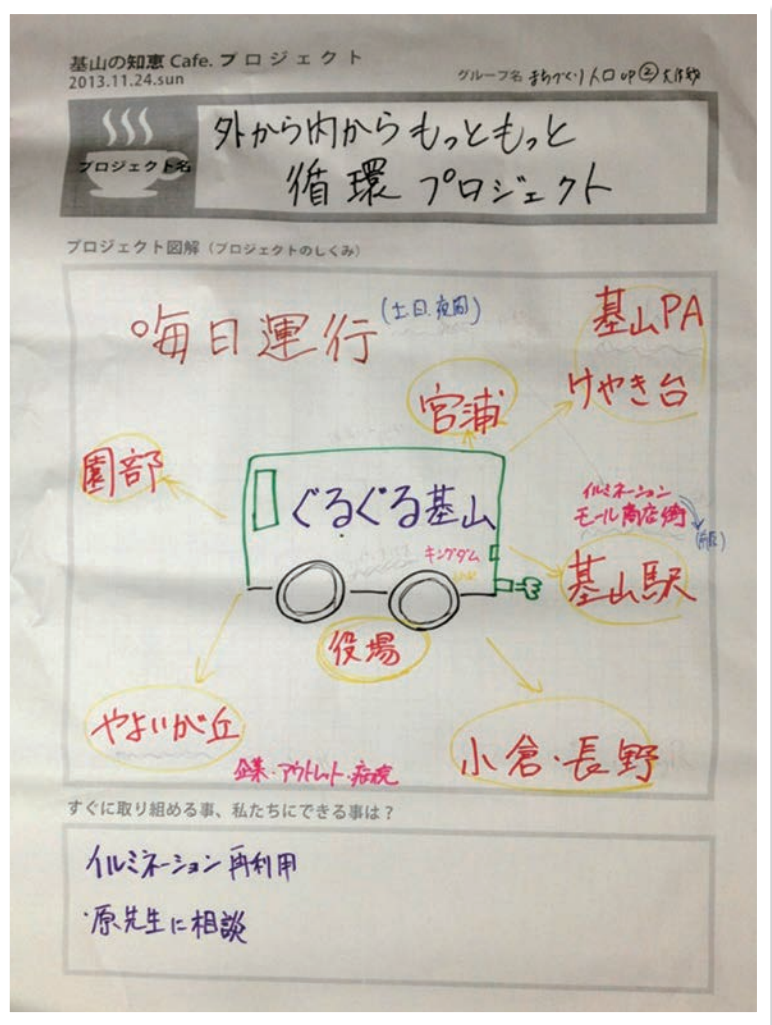 基山の知恵 Cafe. プロジェクト
2013.11.24.sun
グループ名 まちづくり人口up②大作戦
プロジェクト名
外から内からもっともっと
循環プロジェクト
プロジェクト図解（プロジェクトのしくみ）
毎日運行
(土.日.夜間)
基山PA
けやき台
宮浦
園部
ぐるぐる基山
キングダム
イルミネーション
モール商店街
基山駅
役場
やよいが丘
企業・アウトレット・病院
小倉・長野
すぐに取り組める事、私たちにできる事は？
イルミネーション再利用
・原先生に相談